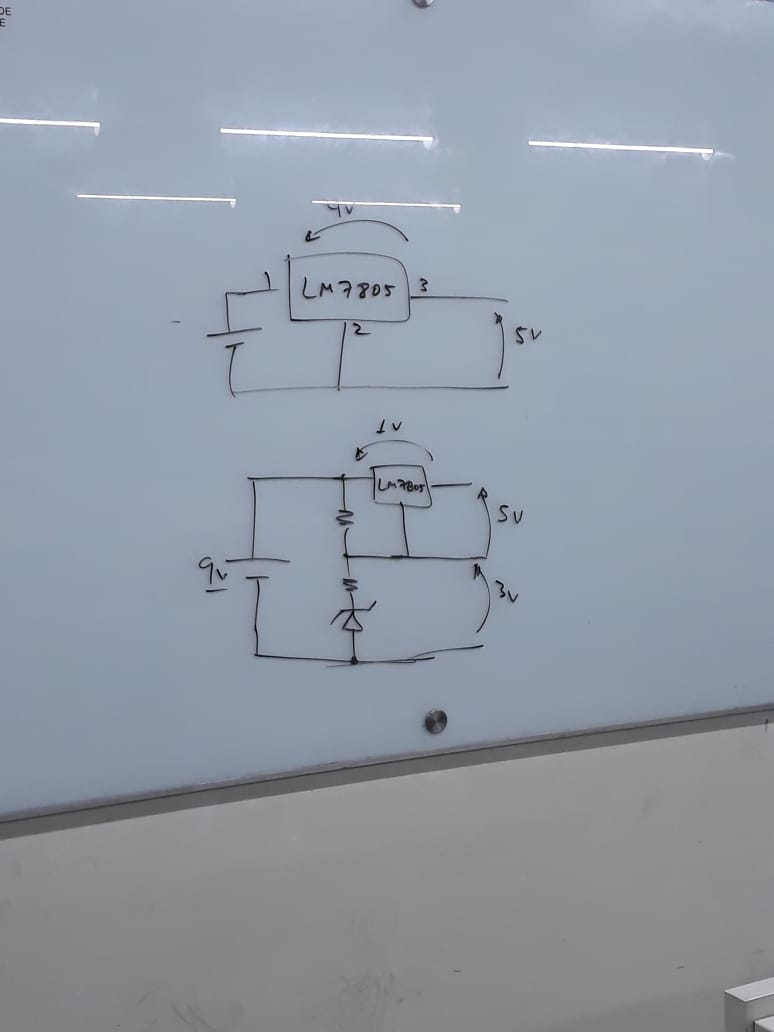 DE
E
4v
1
LM7805
3
2
5v
1v
LM7805
5v
9v
3v